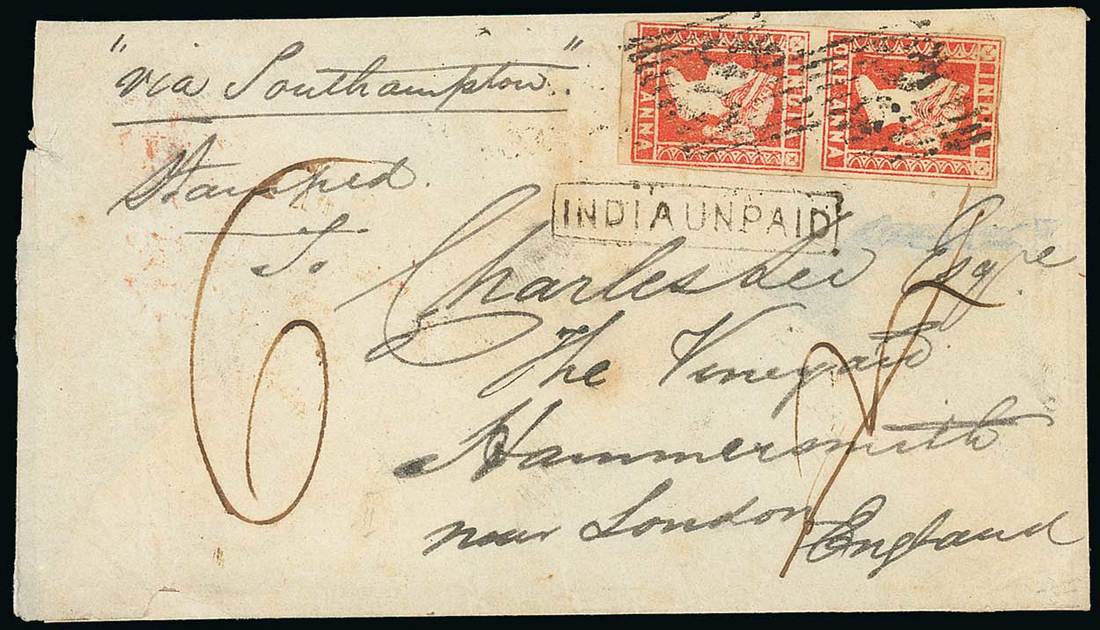 "via Southampton."
Stamped.
INDIA
ONE ANNA
INDIA
ONE ANNA
INDIA UNPAID
To Charles Lee Esqre
The Vineyard
Hammersmith
near London
England
6